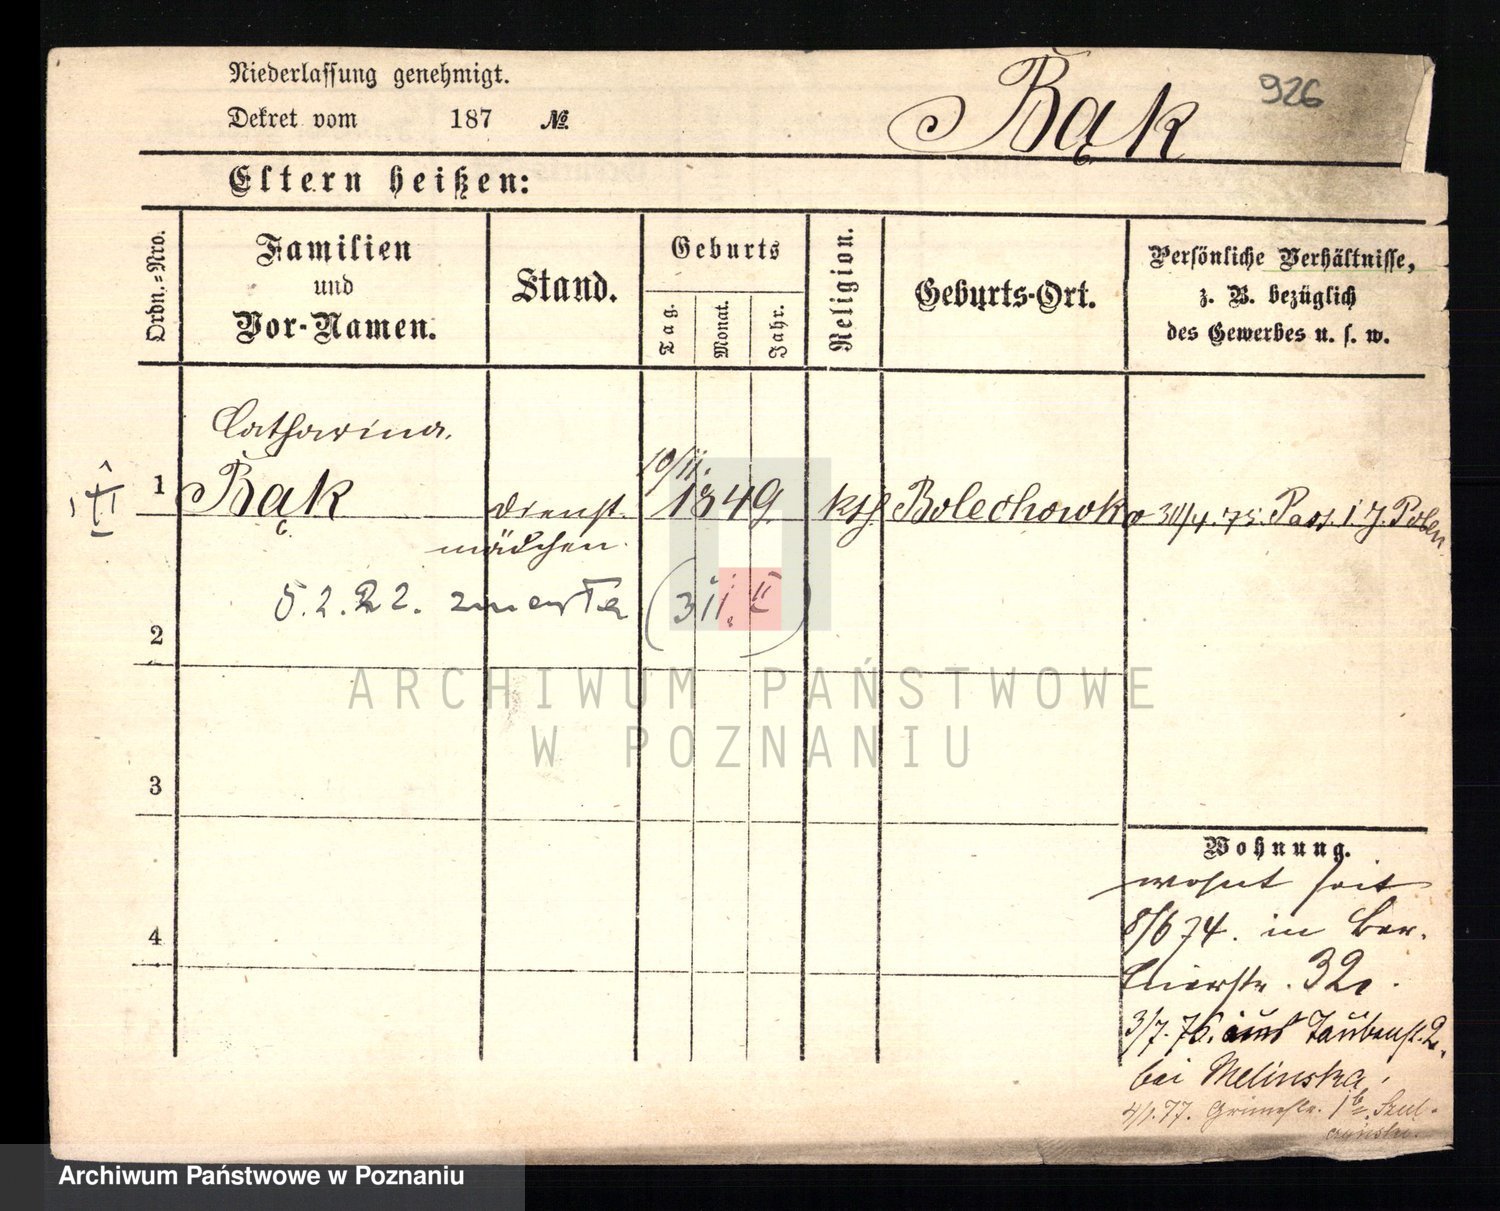 Niederlassung genehmigt.
Dekret vom 187 №
Bąk
926
Eltern heißen:
Ordn.-Nro.
Familien
und
Vor-Namen.
Stand.
Geburts
Tag.
Monat.
Jahr.
Religion.
Geburts-Ort.
Persönliche Verhältnisse,
z. B. bezüglich
des Gewerbes u. s. w.
Catharina.
1 Bąk
dienst-
mädchen.
10/11.
1849
kth
Bolechowko
30/4.75. Pass. i. J. Polen
5.2.22. zmarła
2
3
4
Wohnung.
wohnt seit
8/6 74. in Ber-
linerstr. 32.
3/7.76. aus Taubenst. 2.
bei Melinska.
4/1.77.
ARCHIWUM PAŃSTWOWE
W POZNANIU
Archiwum Państwowe w Poznaniu